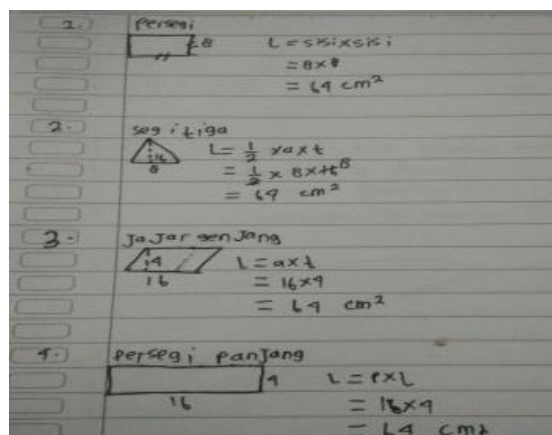 1.) Persegi
8 L = sisi x sisi
= 8 x 8
= 64 cm²
2.) segitiga
16 L = 1/2 x a x t
8 = 1/2 x 8 x 16 8
= 64 cm²
3.) Jajar genjang
4 L = a x t
16 = 16 x 4
= 64 cm²
4.) persegi panjang
4 L = P x L
16 = 16 x 4
= 64 cm2